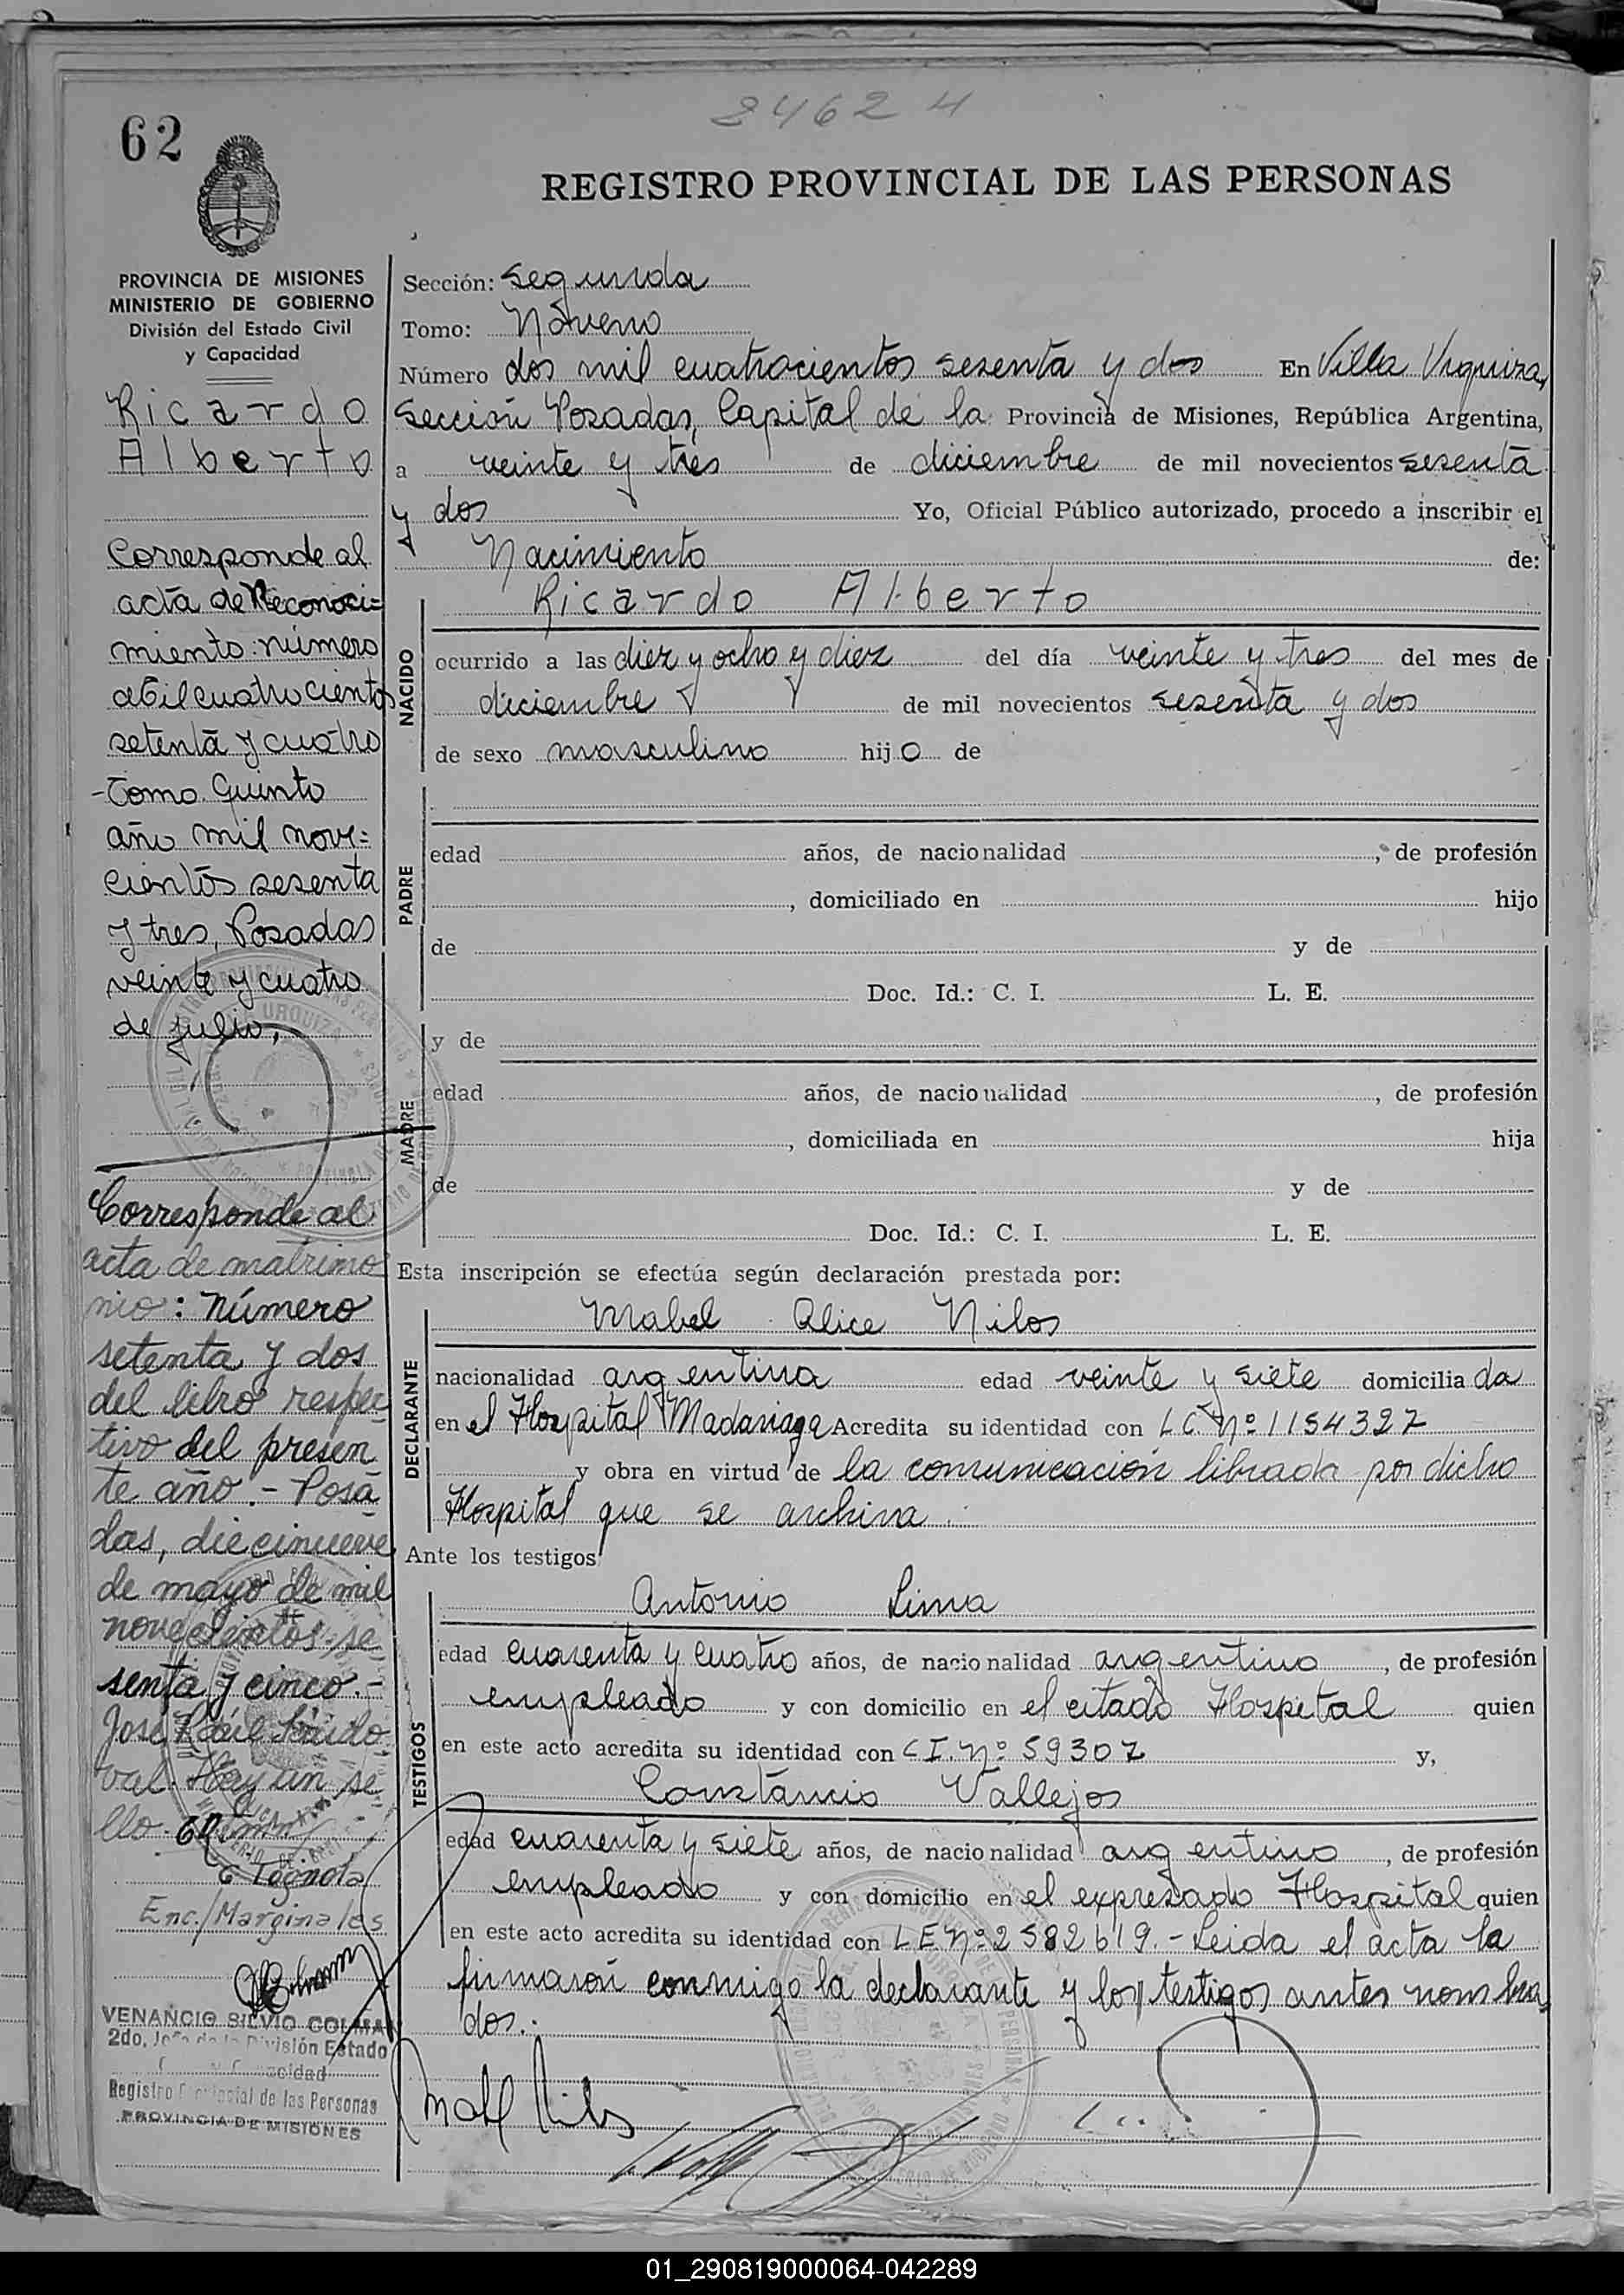 84624
62
REGISTRO PROVINCIAL DE LAS PERSONAS
PROVINCIA DE MISIONES
MINISTERIO DE GOBIERNO
División del Estado Civil
y Capacidad
Ricardo
Alberto
Corresponde al
acta de Reconoci=
miento número
cuatrocientos
setenta y cuatro
-Tomo Quinto
año mil nove=
cientos sesenta
y tres, Posadas
veinte y cuatro
de julio,
Corresponde al
acta de matrimo
nio: número
setenta y dos
del libro respec
tivo del presen
te año.- Posa
das, diecinueve
de mayo de mil
novecientos se
senta y cinco.-
José
val. Hay un se
llo.
Enc./Marginales
VENANCIO SILVIO COLMAN
2do. Jefe de la División Estado
Registro Provincial de las Personas
PROVINCIA DE MISIONES
Sección: Segunda
Tomo: Noveno
Número dos mil cuatrocientos sesenta y dos En Villa Urquiza,
Sección Posadas, Capital de la Provincia de Misiones, República Argentina,
a veinte y tres de diciembre de mil novecientos sesenta
y dos Yo, Oficial Público autorizado, procedo a inscribir el
Nacimiento de:
NACIDO
Ricardo Alberto
ocurrido a las diez y ocho y diez del día veinte y tres del mes de
diciembre de mil novecientos sesenta y dos
de sexo masculino hijo de
PADRE
edad años, de nacionalidad , de profesión
, domiciliado en hijo
de y de
Doc. Id.: C. I. L. E.
MADRE
y de
edad años, de nacionalidad , de profesión
, domiciliada en hija
de y de
Doc. Id.: C. I. L. E.
Esta inscripción se efectúa según declaración prestada por:
DECLARANTE
Mabel Alice Nilos
nacionalidad argentina edad veinte y siete domiciliada
en el Hospital Madariaga Acredita su identidad con L C. Nº 1154327
y obra en virtud de la comunicación librada por dicho
Hospital que se archiva.
Ante los testigos
TESTIGOS
Antonio Lima
edad cuarenta y cuatro años, de nacionalidad argentino, de profesión
empleado y con domicilio en el citado Hospital quien
en este acto acredita su identidad con C I. Nº 59307 y,
Constancio Vallejos
edad cuarenta y siete años, de nacionalidad argentino, de profesión
empleado y con domicilio en el expresado Hospital quien
en este acto acredita su identidad con L E. Nº 2582619.- Leida el acta la
firmaron conmigo la declarante y los testigos antes nombra
dos.
01_290819000064-042289